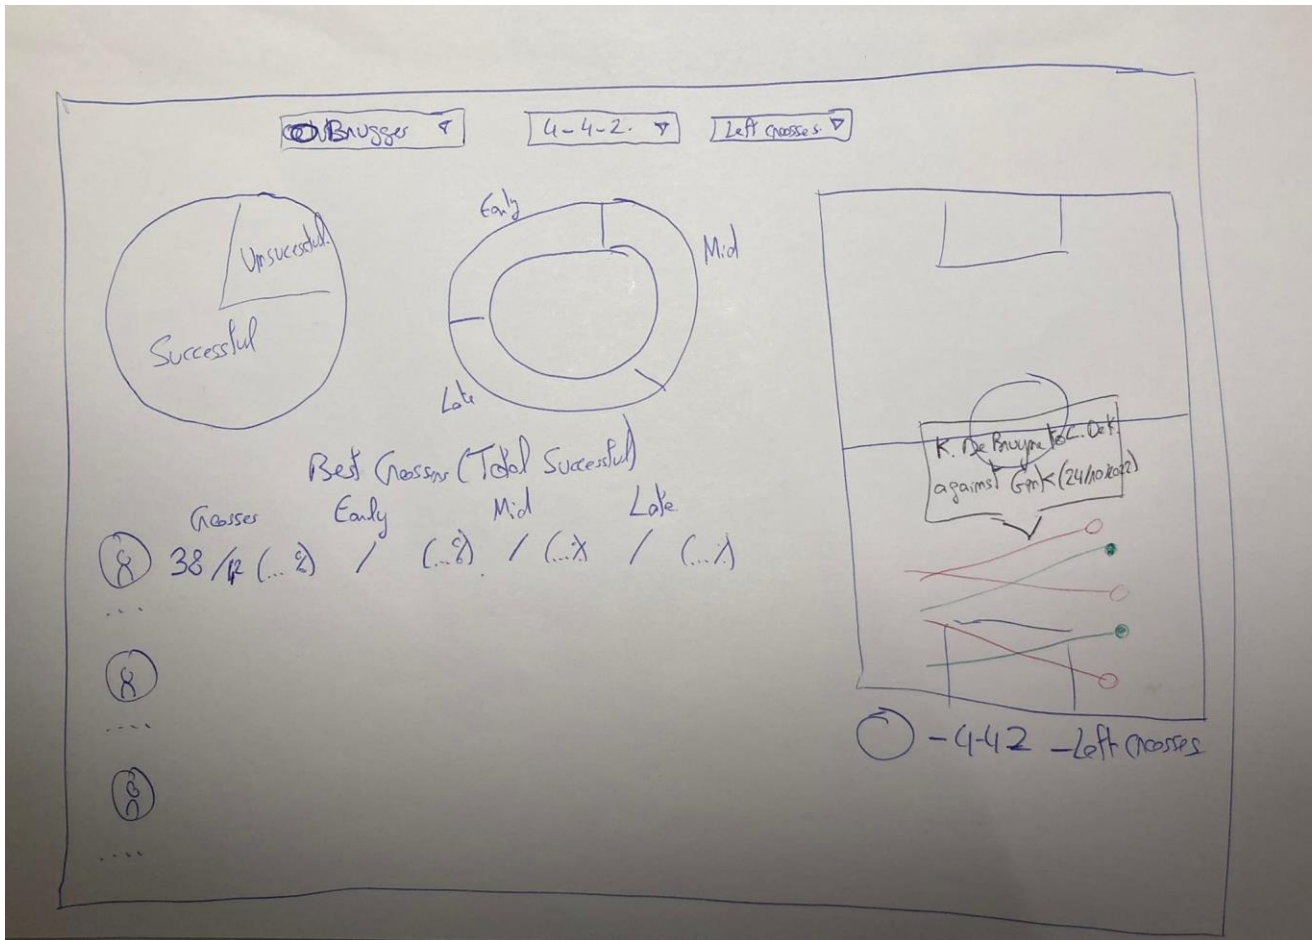 Brugges
4-4-2.
Left Crosses.
Unsucessful
Successful
Early
Mid
Late
Best Crossers (Total Successful)
Crosses Early Mid Late
38/12 (...%) / (...%). / (...%) / (...%)
....
....
....
K. De Bruyne to C. Dek.
against Genk (24/10/2022)
- 4-42 - Left Crosses